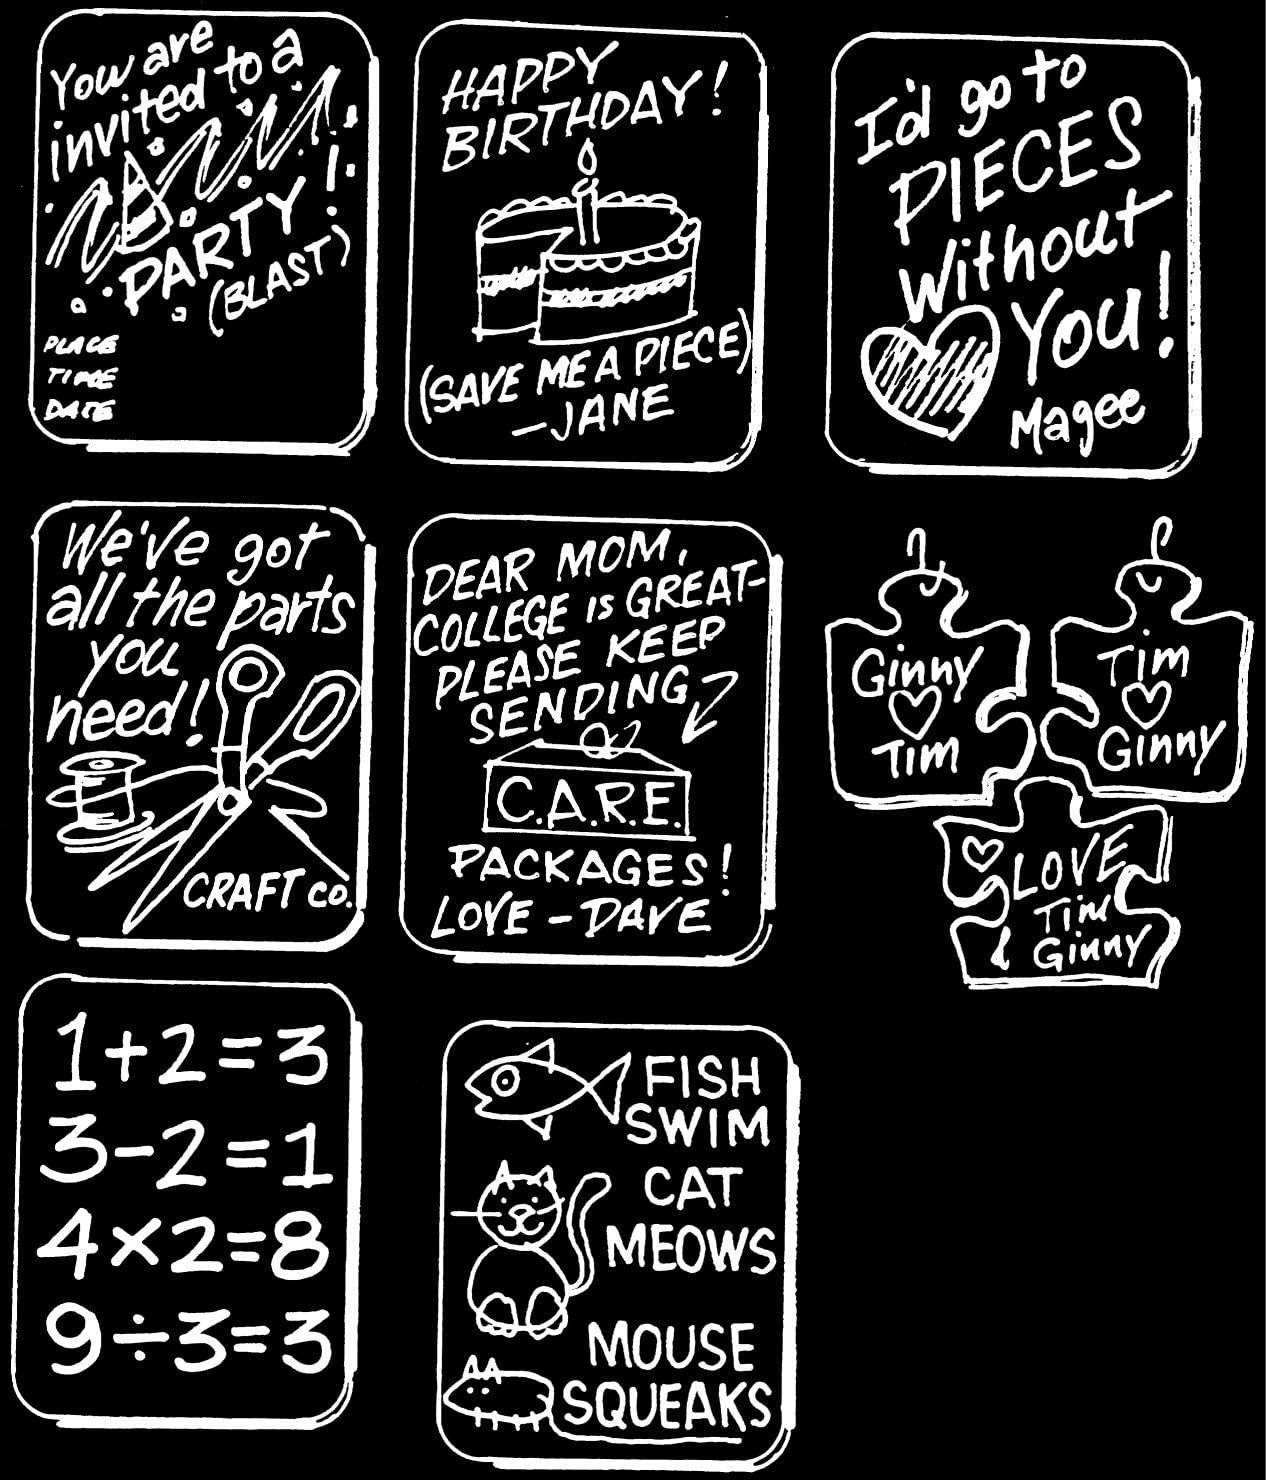 You are
invited to a
PARTY!
(BLAST)
PLACE
TIME
DATE
HAPPY
BIRTHDAY!
(SAVE ME A PIECE)
-JANE
I'd go to
PIECES
without
YOU!
Magee
We've got
all the parts
you
need!
CRAFT CO.
DEAR MOM,
COLLEGE IS GREAT-
PLEASE KEEP
SENDING
C.A.R.E.
PACKAGES!
LOVE - DAVE
Ginny
♡
Tim
Tim
♡
Ginny
♡ LOVE
Tim
& Ginny
1+2=3
3-2=1
4×2=8
9÷3=3
FISH
SWIM
CAT
MEOWS
MOUSE
SQUEAKS